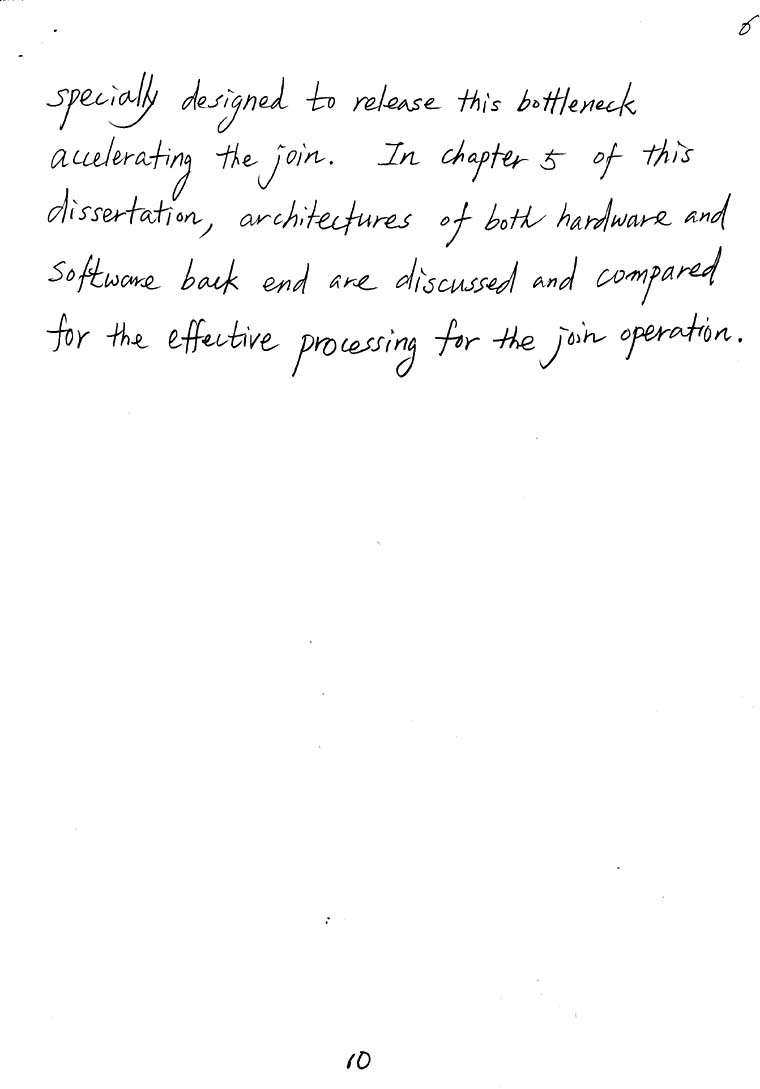 6
specially designed to release this bottleneck
accelerating the join. In chapter 5 of this
dissertation, architectures of both hardware and
software back end are discussed and compared
for the effective processing for the join operation.
10